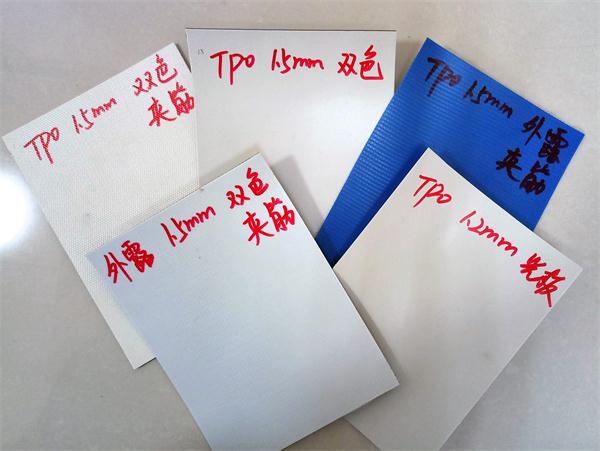 TPO 1.5mm 双色
夹筋
TPO 1.5mm 双色
TPO 1.5mm 外露
夹筋
外露 1.5mm 双色
夹筋
TPO 1.2mm 光板